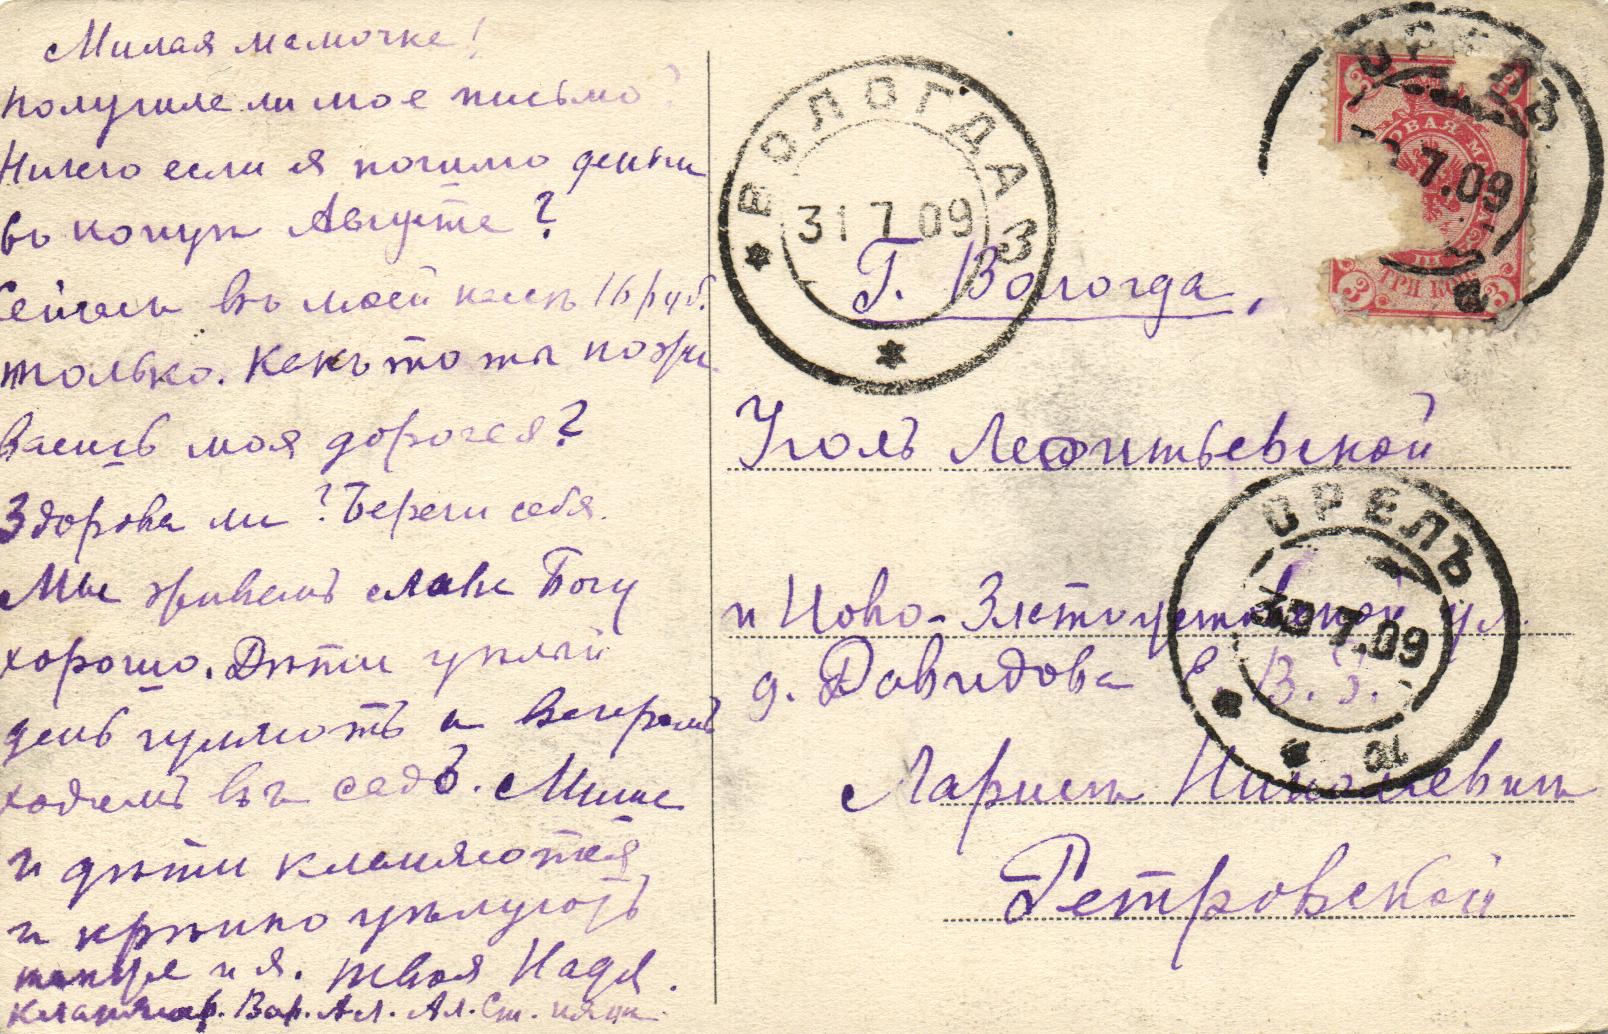 Милая мамочка!
получила ли мое письмо?
Ничего если я пошлю деньги
въ концѣ Августа?
Сейчасъ въ моей кассѣ 16 руб.
только. Какъ то ты пожи
ваешь моя дорогая?
Здорова ли? Береги себя.
Мы живемъ слава Богу
хорошо. Дѣти цѣлый
день гуляютъ и вечеромъ
ходимъ въ садъ. Миша
и дѣти кланяются
и крѣпко цѣлуютъ
также и я. твоя Надя.
Вар. Ал. Ал. Ст. няни
ВОЛОГДА 3
31 7 09
Г. Вологда,
Уголъ Леонтьевской
и Ново-Златоустовской ул.
д. Давидова Е. В. Б.
Ларисѣ Николаевнѣ
Петровской
ОРЕЛЪ
30 7.09
ОРЕЛЪ
7.09
ОВАЯ МАРКА
ТРИ КОП
3
3
3